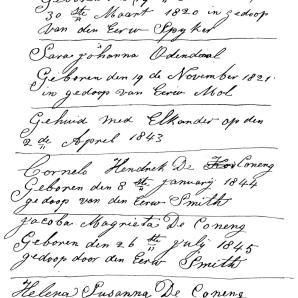 30 ste Maart 1820 in gedoop
van den Eerw Spyker
Sara Johanna Odendaal
Geboren den 19 de November 1821
in gedoop van Eerw Mol
Gehuid med Elkander op den
2 de Aperel 1843
Cornels Hendrek De Coneng
Geboren den 8 ste January 1844
gedoop van den Eerw Smith
Jacoba Magrieta De Coneng
Geboren den 26 ste July 1845
gedoop door den Eerw Smith
Helena Susanna De Coneng